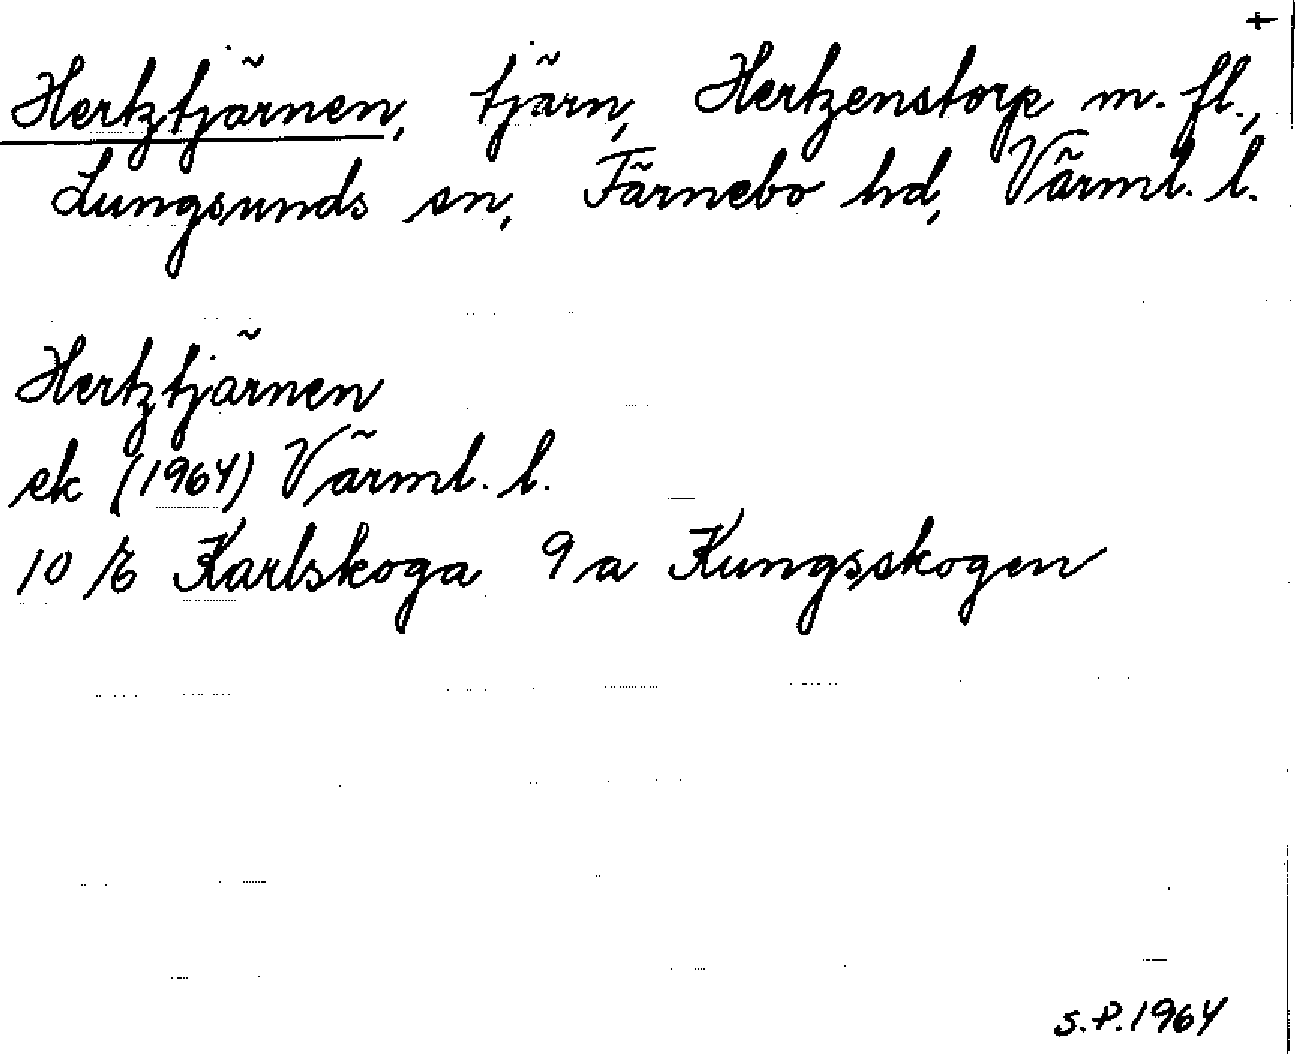 +
Hertztjärnen, tjärn, Hertzenstorp m. fl.,
Lungsunds sn, Färnebo hd, Värml. l.
Hertztjärnen
ek (1964) Värml. l.
10 E Karlskoga 9a Kungsskogen
S.P. 1964